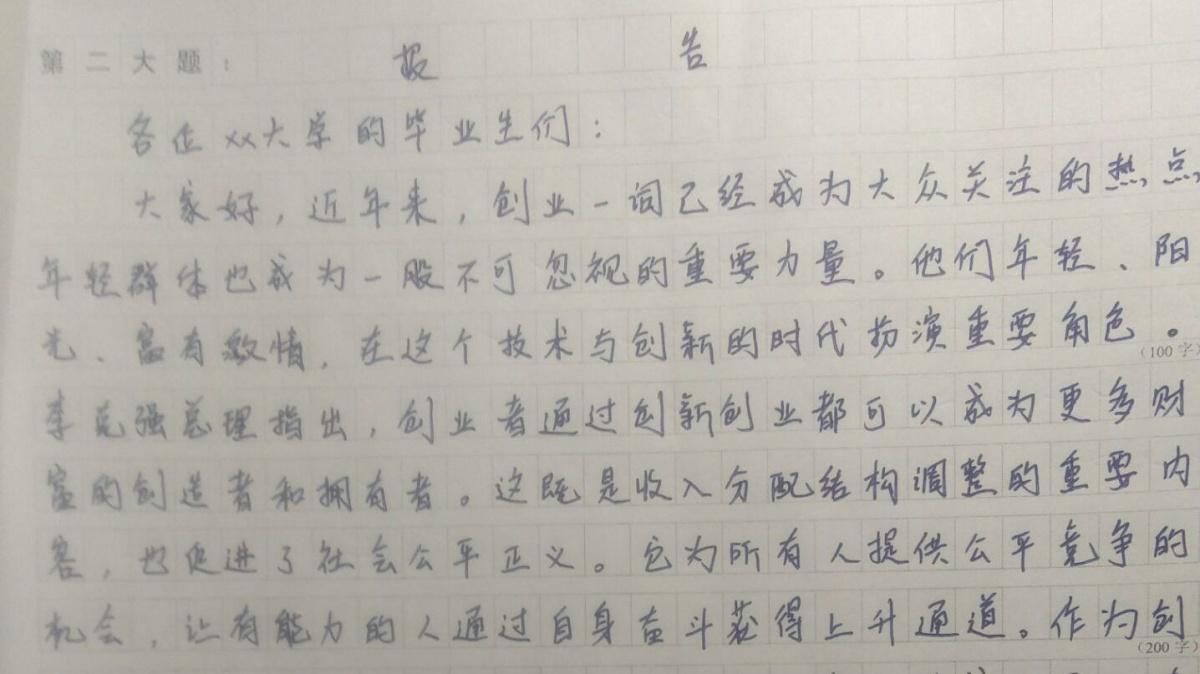 第二大题： 报告
各位xx大学的毕业生们：
大家好，近年来，创业一词已经成为大众关注的热点，
年轻群体也成为一股不可忽视的重要力量。他们年轻、阳
光、富有激情，在这个技术与创新的时代扮演重要角色。
（100字）
李克强总理指出，创业者通过创新创业都可以成为更多财
富的创造者和拥有者。这既是收入分配结构调整的重要内
容，也促进了社会公平正义。它为所有人提供公平竞争的
机会，让有能力的人通过自身奋斗获得上升通道。作为创
（200字）